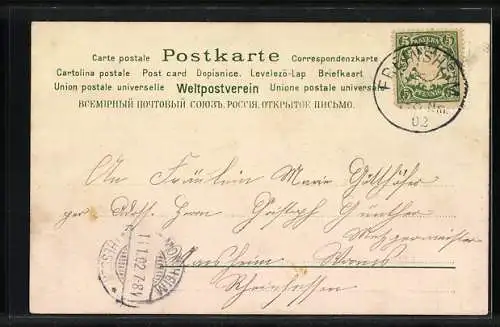 Carte postale Postkarte Correspondenzkarte
Cartolina postale Post card Dopisnice. Levelező-Lap Briefkaart
Union postale universelle Weltpostverein Unione postale universelle
ВСЕМІРНЫЙ ПОЧТОВЫЙ СОЮЗЪ. РОССІЯ. ОТКРЫТОЕ ПИСЬМО.
5 5
BAYERN
02
An Fräulein Marie
per Adress. Herrn Christoph Günther
Metzgermeister
Worms
Rheinhessen
11.1.02 7-8V
HEIM